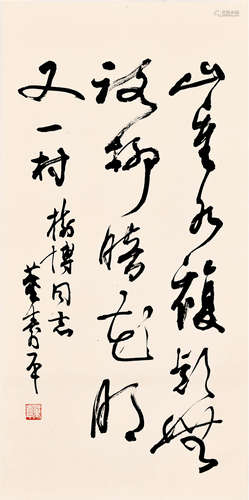 山重水複疑無
路柳暗花明
又一村
樹博同志
董壽平